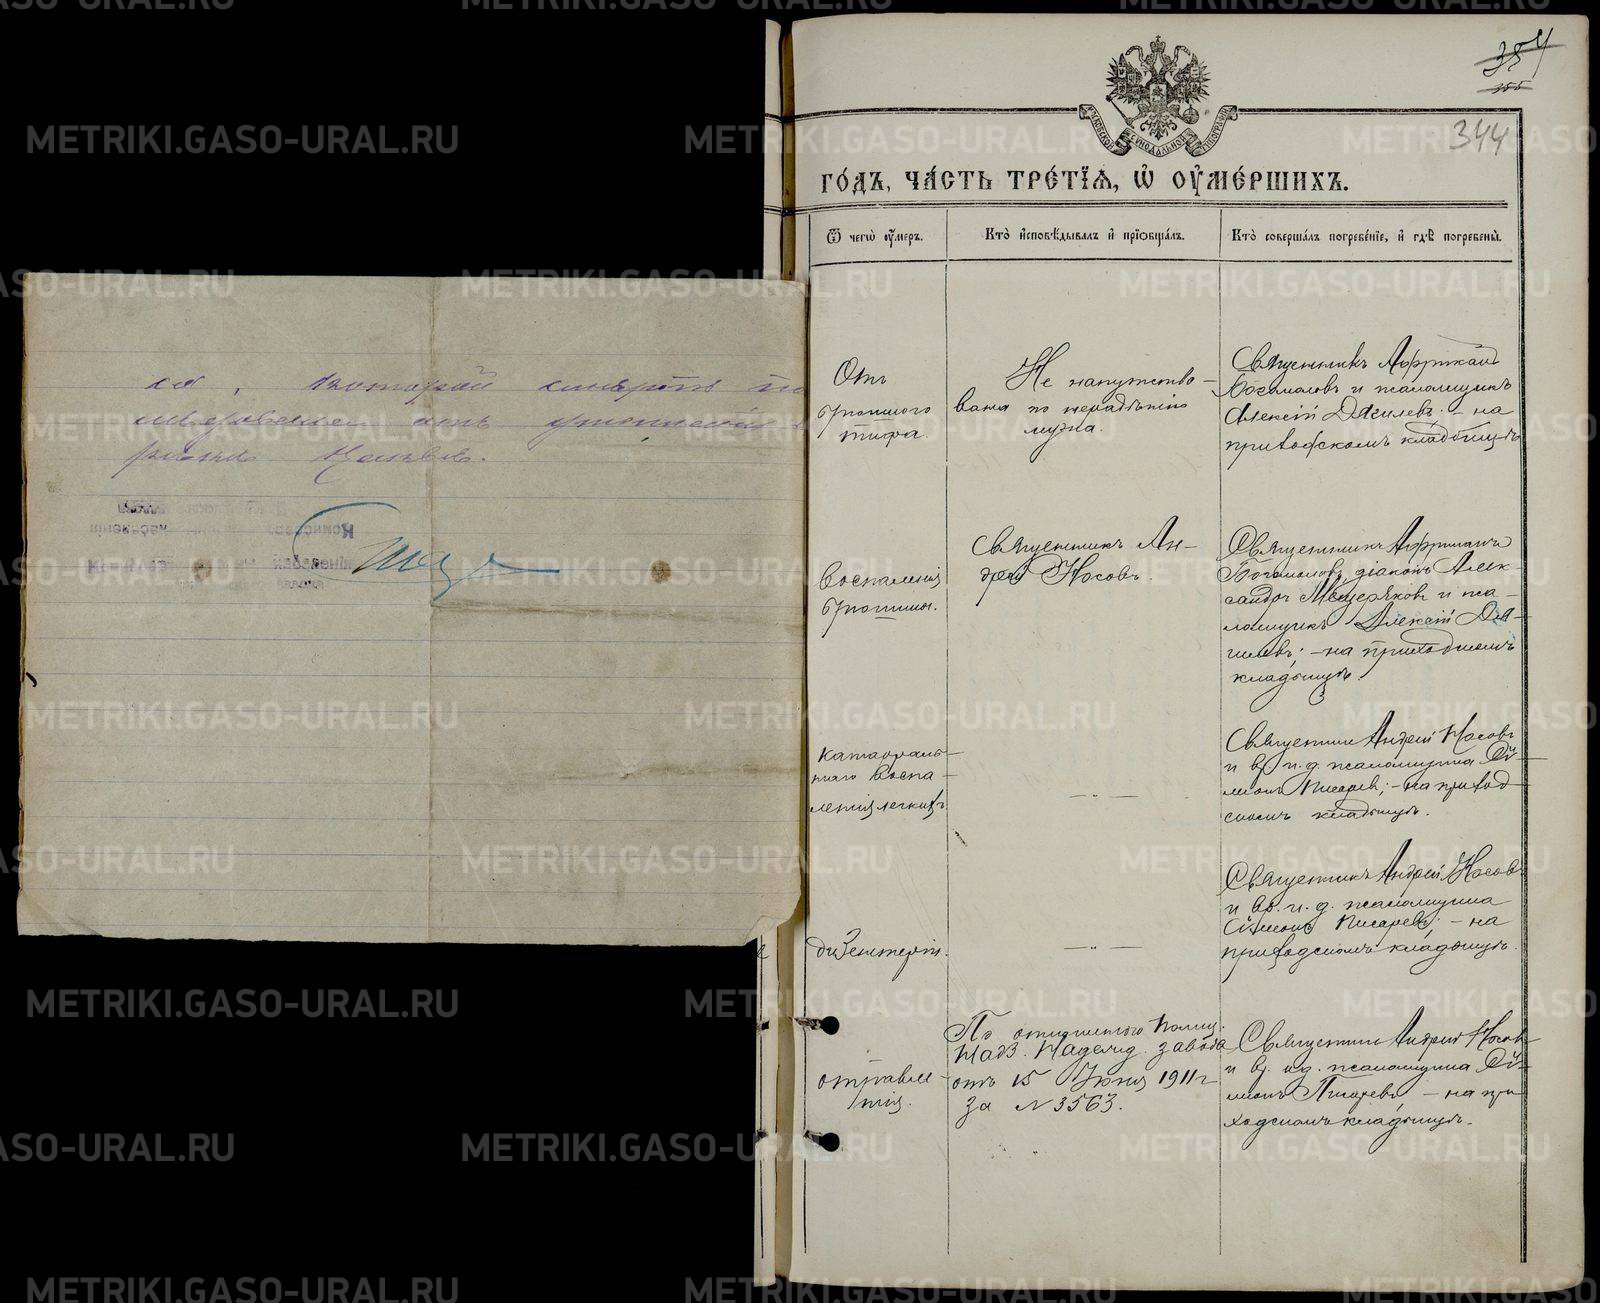 354
355
344
МОСКОВСКОЙ СѴНОДАЛЬНОЙ ТИПОГРАФІИ
ГО́ДЪ, ЧА́СТЬ ТРЕ́ТІѦ, Ѽ ОУ҆МЕ́РШИХЪ.
Ѿ чегѡ̀ оу҆́меръ.
Кто̀ и҆сповѣ́дывалъ и҆ прїѡбща́лъ.
Кто̀ соверша́лъ погребе́нїе, и҆ гдѣ̀ погребены̀.
Отъ
брюшного
тифа.
Не напутство-
вана по нерадѣнію
мужа.
Священникъ
Богомоловъ и псаломщикъ
Алексій Дягилевъ; - на
приходскомъ кладбищѣ
Воспаленія
брюшин.
Священникъ Ан-
дрей Носовъ.
Священникъ
Богомоловъ, діаконъ Алек-
сандръ Мещеряковъ и пса-
ломщикъ Алексій Дя-
гилевъ; - на приходскомъ
кладбищѣ.
катарраль-
наго воспа-
ленія легкихъ
- „ -
Священникъ Андрей Носовъ
и вр. и. д. псаломщика Си-
меонъ Писаревъ; - на приход
скомъ кладбищѣ.
дизентеріи.
- „ -
Священникъ Андрей Носовъ
и вр. и. д. псаломщика
Симеонъ Писаревъ; - на
приходскомъ кладбищѣ.
отравле-
нія.
По отношенію Полиц.
Надз. Надежд. завода
отъ 15 Іюня 1911 г
за № 3563.
Священникъ Андрей Носовъ
и вр. и. д. псаломщика Си-
меонъ Писаревъ, - на при
ходскомъ кладбищѣ.
ея, которой смерть по
следовала отъ
METRIKI.GASO-URAL.RU